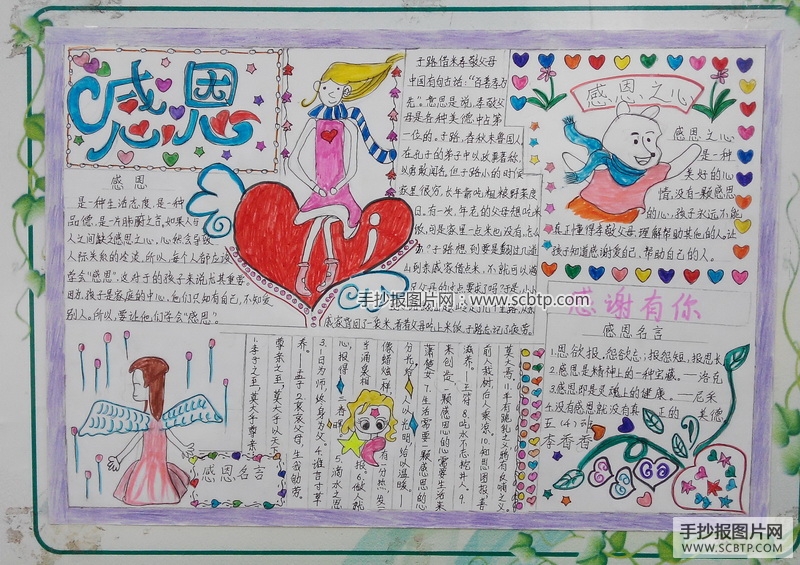 感恩
感恩
是一种生活态度,是一种
品德,是一片肺腑之言。如果人与
人之间缺乏感恩之心,必然会导致
人际关系的冷淡,所以,每个人都应该
学会“感恩”,这对于的孩子来说尤其重要
因为,孩子是家庭的中心,他们只知有自己,不知爱
别人。所以,要让他们学会“感恩”。
子路借米孝敬父母
中国有句古话:“百善孝为
先”。意思是说,孝敬父
母是各种美德中占第
一位的。子路,春秋末鲁国人,
在孔子的弟子中以政事著称,
以勇敢闻名。但子路小的时候
家里很穷,长年靠吃粗粮野菜度
日。有一次,年老的父母想吃米
饭,可是家里一点米也没有,怎么
办?子路想到要是翻过几道
山到亲戚家借点米,不就可以满
感恩之心
感恩之心
是一种
美好的心
情,没有一颗感恩
的心,孩子永远不能
真正懂得孝敬父母理解帮助其他的人。让
孩子知道感谢爱自己、帮助自己的人。
i
手抄报图片网:www.scbtp.com
感谢有你
感恩名言
1.思欲报,怨欲忘;报怨短,报恩长
2.感恩是精神上的一种宝藏。——洛克
3.感恩即是灵魂上的健康。——尼采
4.没有感恩就没有真正的美德
五(4)班
李香香
莫大焉。11.羊有跪乳之恩,鸦有反哺之义
前人栽树,后人乘凉。10.知恩图报,善
滋养。——王符8.吃水不忘挖井人。9.
来创造,一颗感恩的心需要生活来
萧楚女7.生活需要一颗感恩的心
分光给人以光明,给以温暖。——
像蜡烛样,有一分热,发一
3.一日为师,终身为父。4.谁言寸草
养。——孟子2.哀哀父母,生我劬劳。
尊亲之至,莫大乎以天下
1.孝子之至,莫大乎尊亲
感恩名言
手抄报图片网
WWW.SCBTP.COM